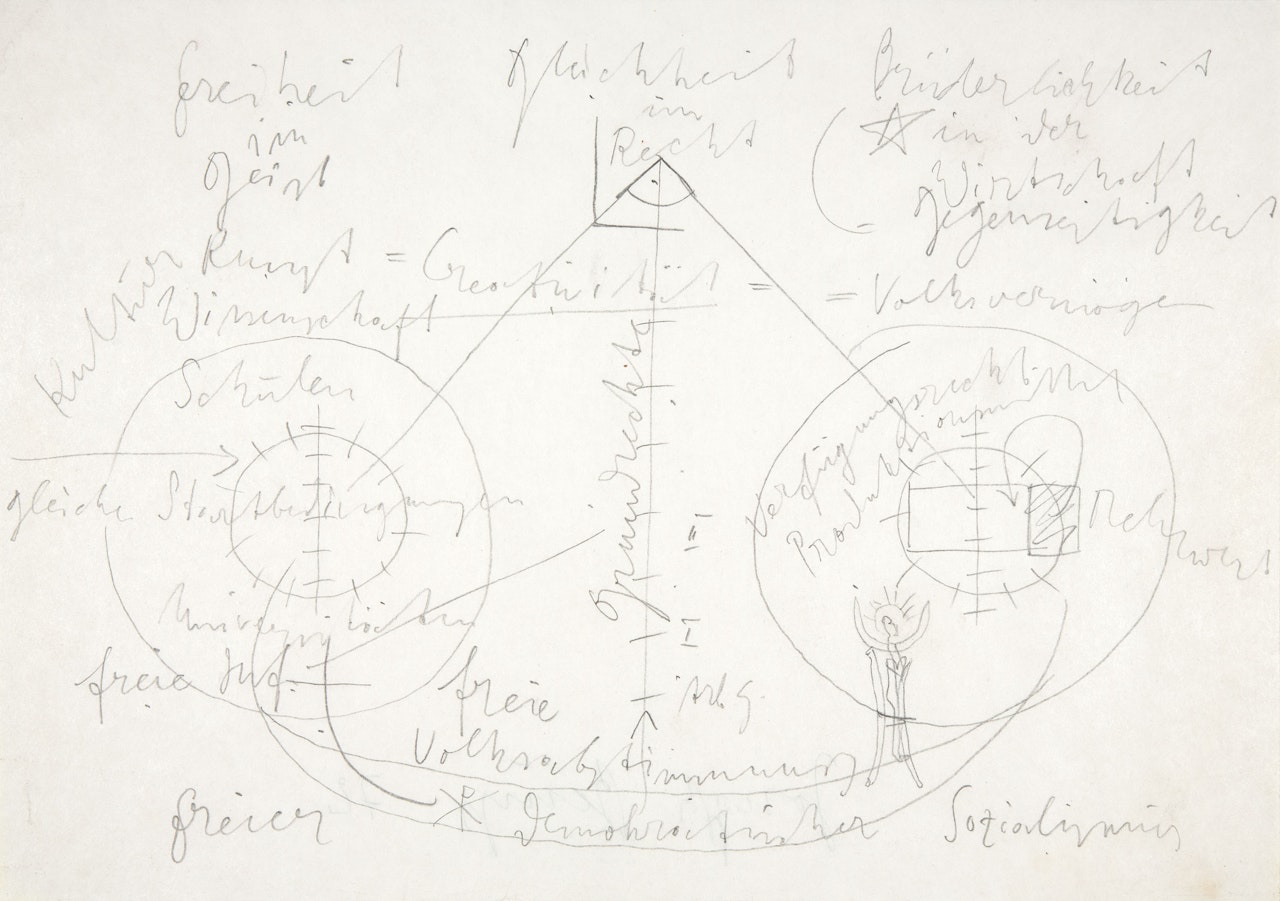 Freiheit
im
Geist
Gleichheit
im
Recht
Brüderlichkeit
in der
Wirtschaft
= Gegenseitigkeit
Kultur
Kunst = Creativität =
Wissenschaft
= Volksvermögen
Schulen
gleiche Startbedingungen
Universitäten
freie Inf.
Grundrechte
II
I
Arb G.
Verfügungsrecht
Produktionsmittel
Mehrwert
freie
Volksabstimmung
freier Demokratischer Sozialismus